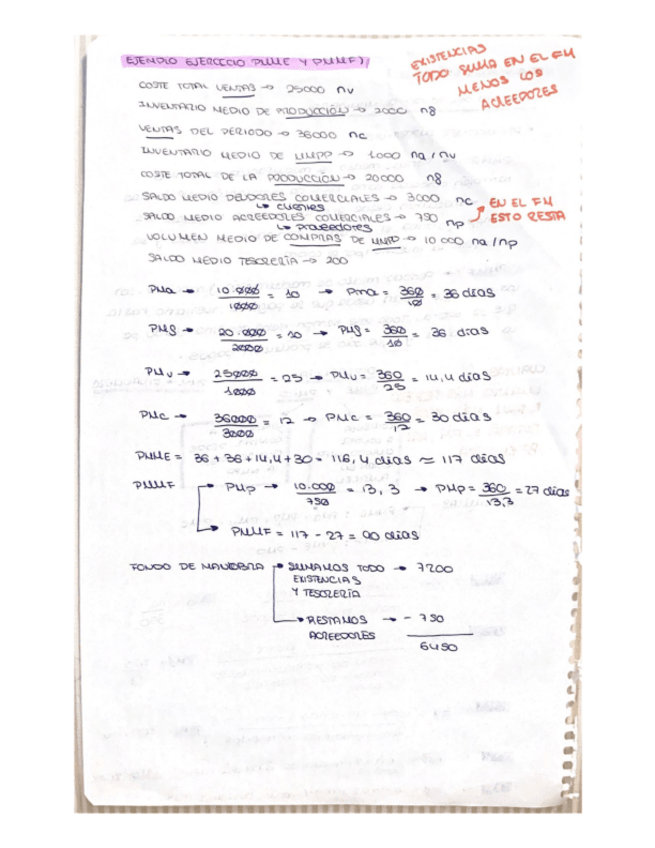 EJEMPLO EJERCICIO PMME Y PMMF)
EXISTENCIAS
TODO SUMA EN EL FM
MENOS LOS
ACREEDORES
COSTE TOTAL VENTAS → 25000 nv
INVENTARIO MEDIO DE PRODUCCIÓN → 2000 ng
VENTAS DEL PERIODO → 36000 nc
INVENTARIO MEDIO DE MMPP → 1000 na / nv
COSTE TOTAL DE LA PRODUCCIÓN → 20000 ng
SALDO MEDIO DEUDORES COMERCIALES → 3000 nc
↳ clientes
SALDO MEDIO ACREEDORES COMERCIALES → 750 np
↳ proveedores
EN EL FM
ESTO RESTA
VOLUMEN MEDIO DE COMPRAS DE MMPP → 10 000 na / np
SALDO MEDIO TESORERÍA → 200
PMa → 10.000/1000 = 10 → Pma = 360/10 = 36 días
PMg → 20.000/2000 = 10 → PMg = 360/10 = 36 días
PMv → 25000/1000 = 25 → PMv = 360/25 = 14,4 días
PMc → 36000/3000 = 12 → PMc = 360/12 = 30 días
PMME = 36 + 36 + 14,4 + 30 = 116,4 días ≈ 117 días
PMMF → PMp → 10.000/750 = 13,3 → PMp = 360/13,3 = 27 días
→ PMMF = 117 - 27 = 90 días
FONDO DE MANIOBRA → SUMAMOS TODO → 7200
EXISTENCIAS
Y TESORERÍA
→ RESTAMOS → - 750
ACREEDORES
6450